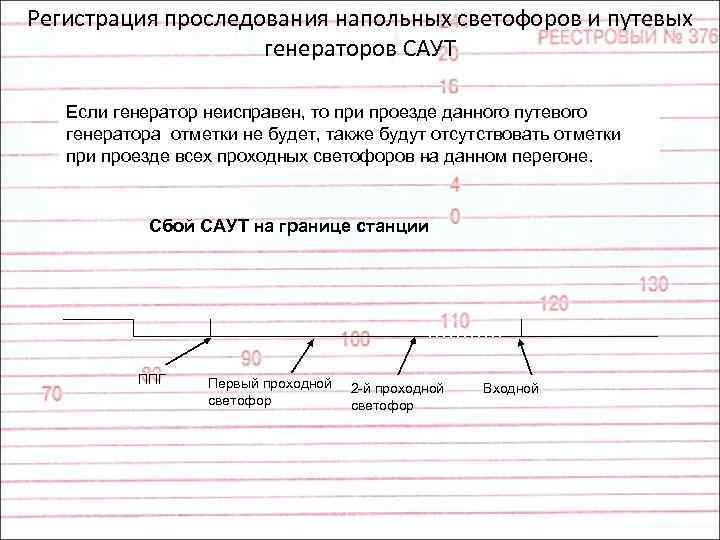 Регистрация проследования напольных светофоров и путевых
генераторов САУТ
20
РЕЕСТРОВЫЙ № 376
16
Если генератор неисправен, то при проезде данного путевого
генератора отметки не будет, также будут отсутствовать отметки
при проезде всех проходных светофоров на данном перегоне.
4
0
Сбой САУТ на границе станции
130
120
110
100
90
70
ППГ
Первый проходной
светофор
2-й проходной
светофор
Входной